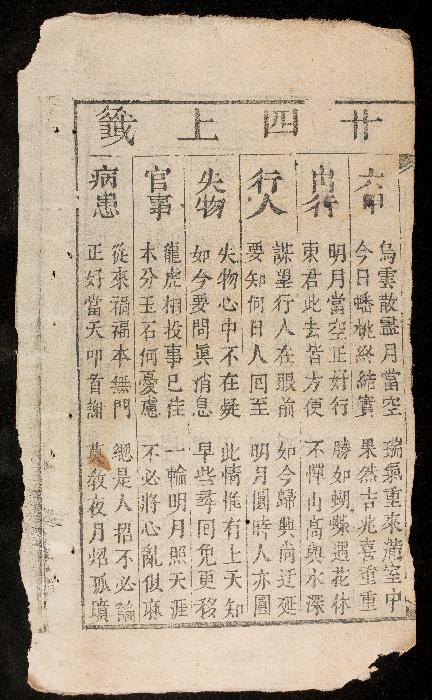 廿四上籤
六甲
烏雲散盡月當空 瑞氣重來滿室中
今日蟠桃終結實 果然吉兆喜重重
出行
明月當空正好行 勝如蝴蝶遇花休
東君此去皆方便 不憚山高與水深
行人
謀望行人在眼前 如今歸興尚迂延
要知何日人回至 明月圓時人亦圓
失物
失物心中不在疑 此情惟有上天知
如今要問眞消息 早些尋回免更移
官事
龍虎相投事已佳 一輪明月照天涯
本分玉石何憂慮 不必將心亂似麻
病患
從來禍福本無門 總是人招不必論
正好當天叩首謝 莫教夜月照孤墳